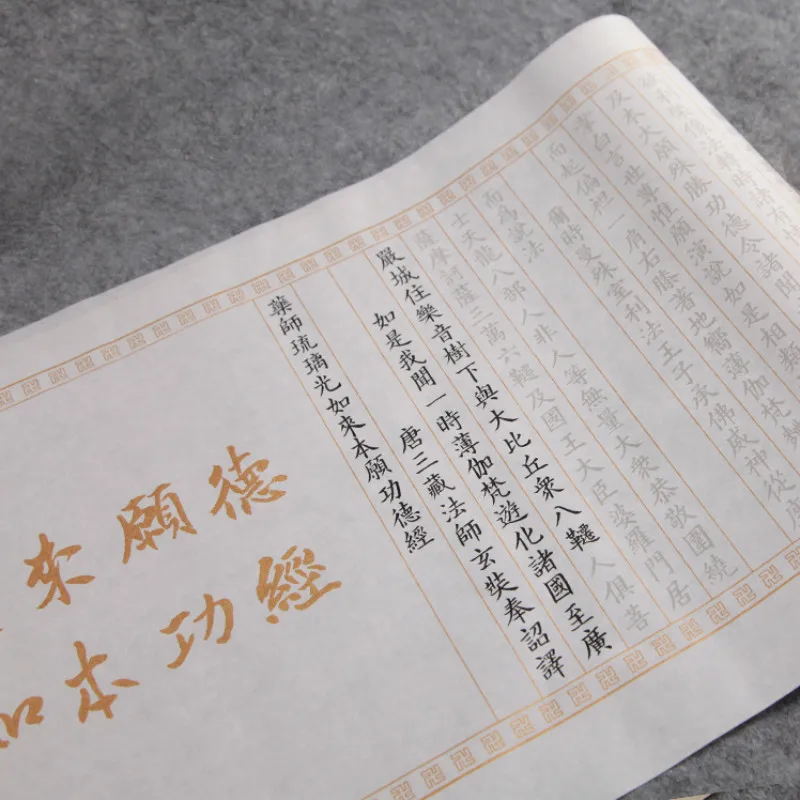 來願德
如本功經
藥師琉璃光如來本願功德經
唐三藏法師玄奘奉詔譯
如是我聞一時薄伽梵遊化諸國至廣
嚴城住樂音樹下與大比丘衆八韆人俱菩
薩摩訶薩三萬六韆及國王大臣婆羅門居
士天龍八部人非人等無量大衆恭敬圍繞
而爲說法
爾時曼殊室利法王子承佛威神從座
而起偏袒一肩右膝著地嚮薄伽梵
掌白言世尊惟願演說如是相類
及本大願殊勝功德令諸聞
像法轉時諸有情